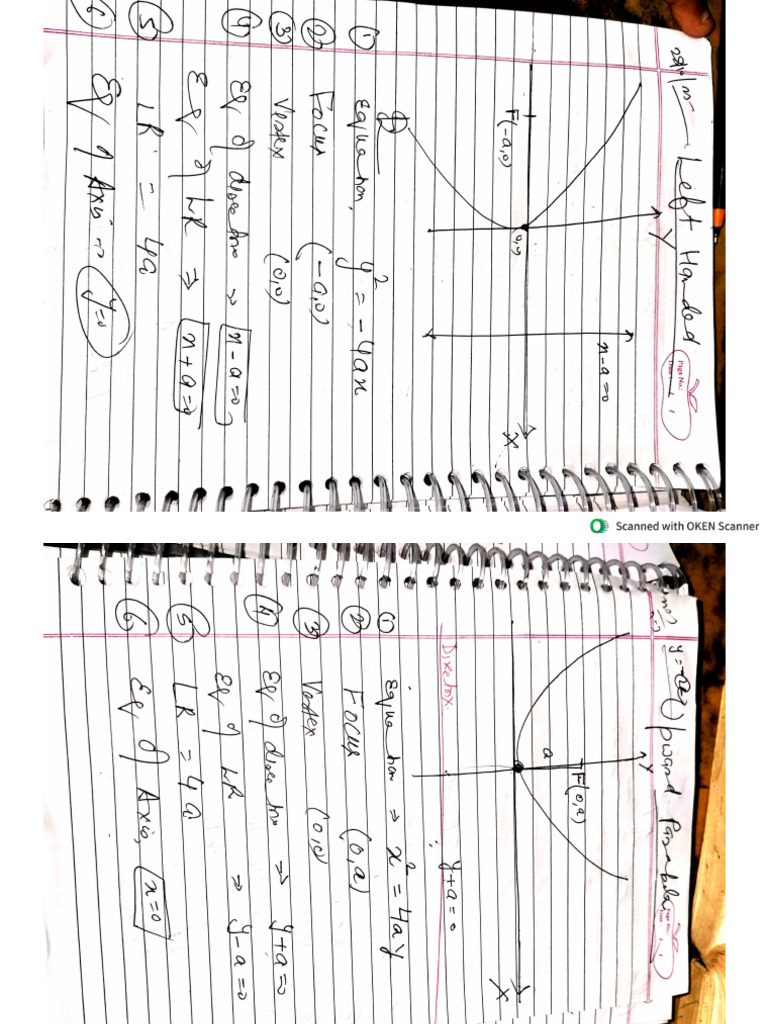 Left Handed
Page No.:
Y
x-a=0
F(-a,0)
(0,0)
X
① Equation, y² = -4ax
② Focus (-a,0)
③ Vertex (0,0)
④ Eq of directrix → x-a=0,
Eq of LR ⇒ x+a=0
⑤ LR = 4a
⑥ Eq of Axis → y=0
Scanned with OKEN Scanner
Upward Parabola
Y
F(0,a)
a
X
Directrix. y+a=0
① Equation ⇒ x² = 4ay
② Focus (0,a)
③ Vertex (0,0)
④ Eq of directrix ⇒ y+a=0
Eq of LR ⇒ y-a=0
⑤ LR = 4a
⑥ Eq of Axis, x=0